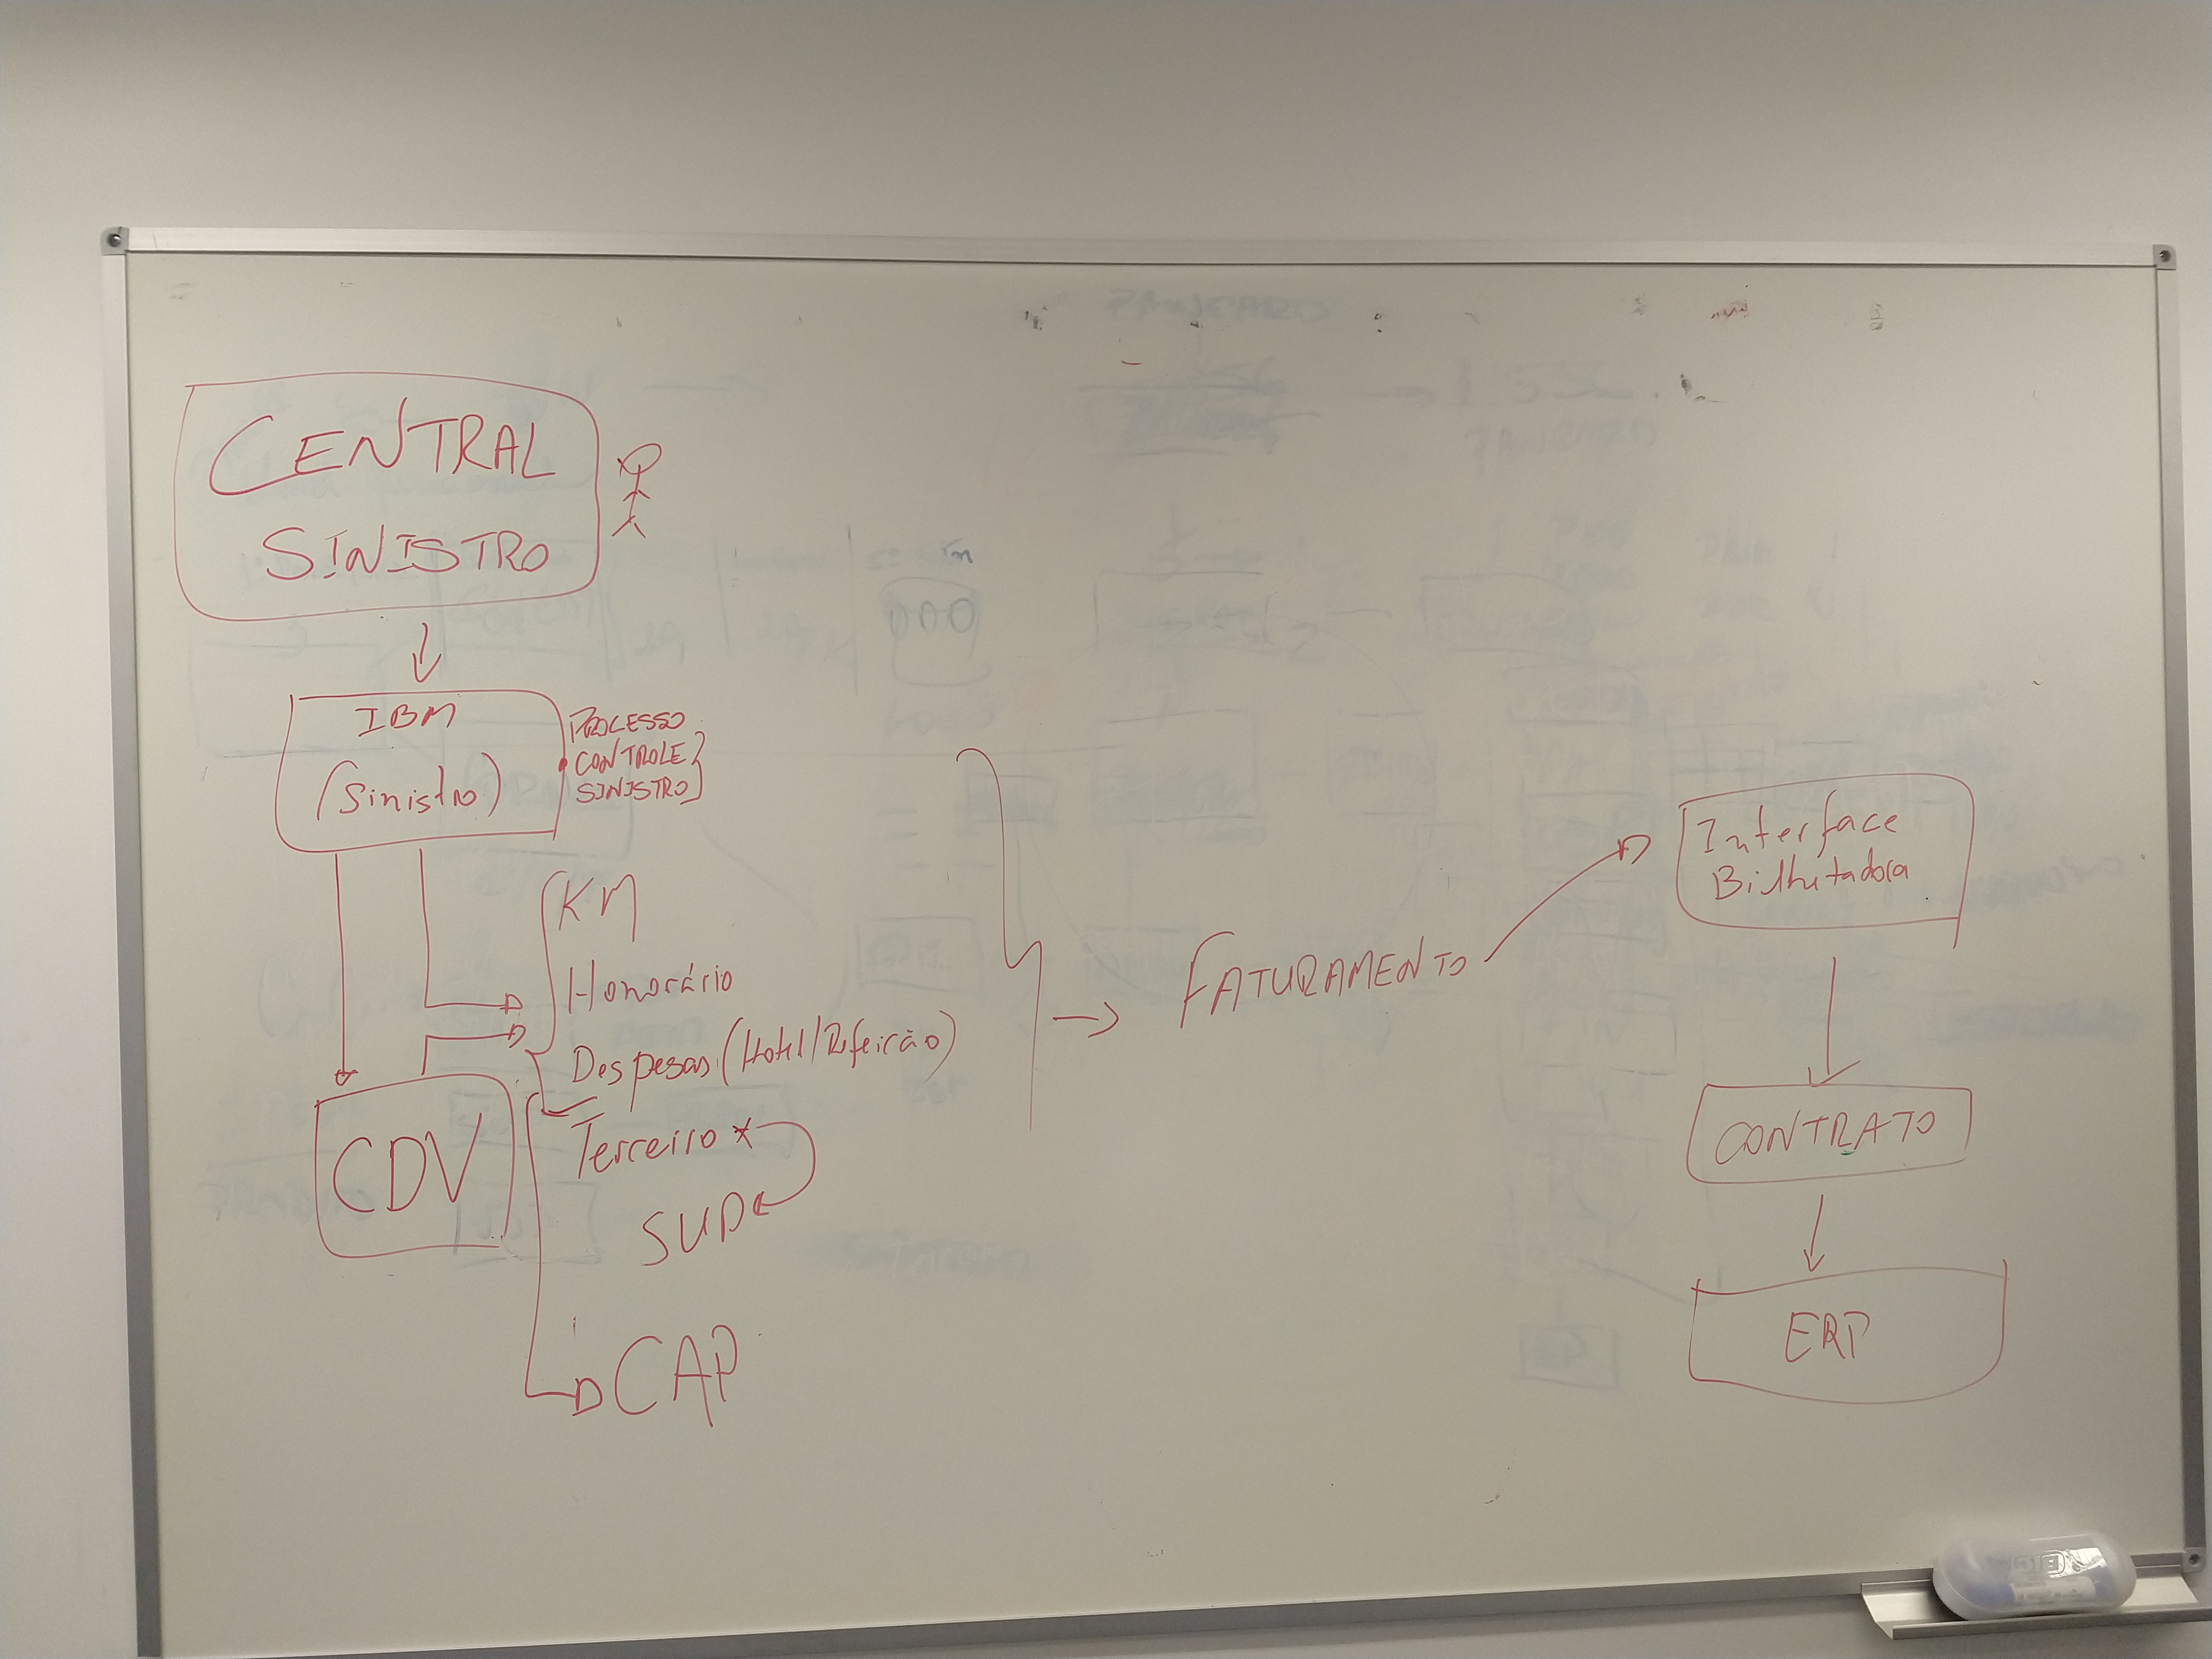 CENTRAL
SINISTRO
IBM
(Sinistro)
PROCESSO
CONTROLE
SINISTRO
KM
Honorário
Despesas (Hotel/Refeicão)
Terceiro *
SUP
CDV
CAP
FATURAMENTO
Interface
Bilhetadora
CONTRATO
ERP